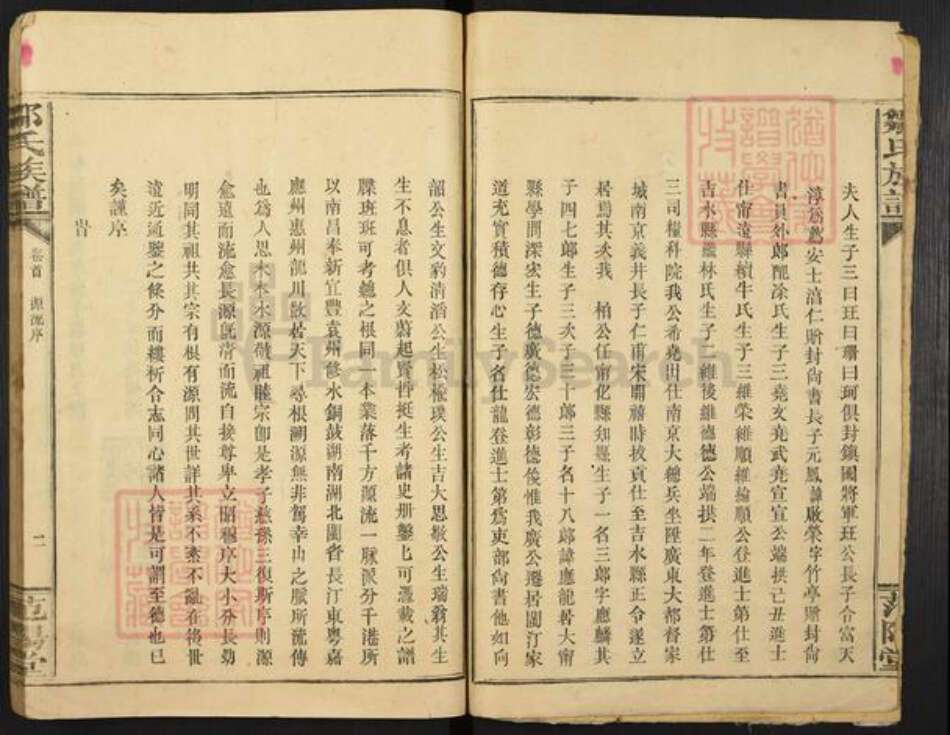 鄒氏族譜
夫人生子三曰玨曰珊曰珂俱封鎮國將軍玨公長子合富天
淳爲薦安士淯仁贈封尚書長子元鳳諱啟榮字竹亭贈封尚
書員外郎配涂氏生子三堯文堯武堯宣宣公端拱己丑進士
仕甯遠縣續牛氏生子三維榮維順維綸順公登進士第仕至
吉水縣羅林氏生子二維後維德德公端拱二年登進士第仕
三司糧科院我公希堯田仕南京大德兵坐陞廣東大都督家
城南京義井長子仁甫宋開禧時拔貢仕至吉水縣正令遂立
居焉其次我 柏公任甯化縣知縣生子一名三郎字應麟其
子四七郎生子三次子三十郎三子名十八郎諱應龍居大甯
縣學問深宏生子德廣德宏德彰德俊惟我廣公遷居閩汀家
道充實積德存心生子名仕龍登進士第爲吏部尚書他如向
范陽堂
韶公生文豹清滔公生松權璞公生吉大思敬公生瑞翁其生
生不息者俱人文蔚起賢哲挺生考諸史册鑿匕可憑載之譜
牒班班可考總之根同一本業落千方源流一脉派分千港所
以南昌奉新宜豐袁州修水銅鼓湖南湖北閩省長汀東粤嘉
應州惠州龍川散居天下尋根溯源無非駕幸山之脈所流傳
也爲人思木本水源敬祖睦宗卽是孝子慈孫三復斯序則源
愈遠而流愈長源旣清而流自接尊卑立昭穆序大小分長幼
明同其祖共其宗有根有源問其世詳其系不紊不亂在將世
遠近通鑒之條分而縷析合志同心諸人皆是可謂至德也已
矣謹序
鄒氏族譜
卷首
源流序
二
范陽堂
FamilySearch